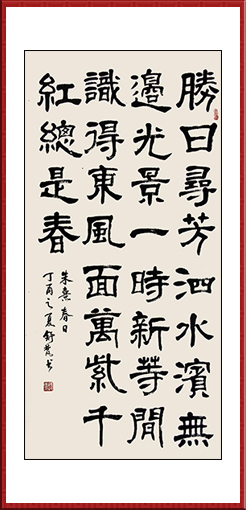 勝日尋芳泗水濱無
邊光景一時新等閒
識得東風面萬紫千
紅總是春
朱熹春日
丁酉之夏舒书